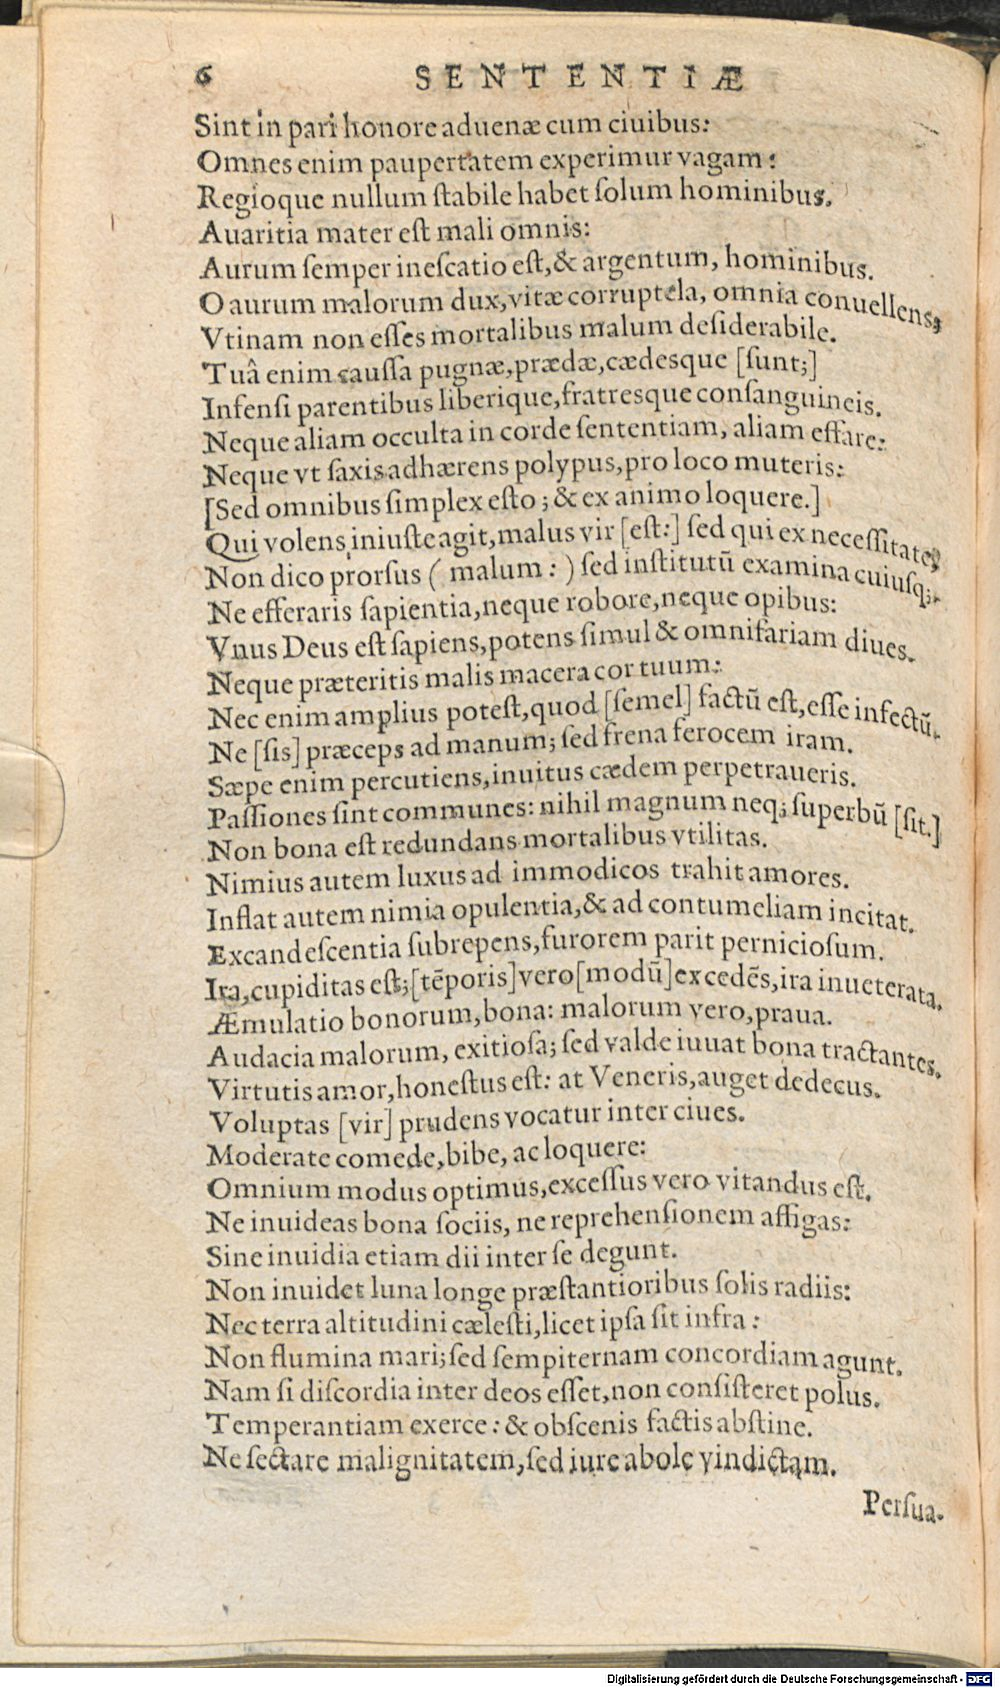 6 SENTENTIÆ
Sint in pari honore aduenæ cum ciuibus:
Omnes enim paupertatem experimur vagam:
Regioque nullum ſtabile habet ſolum hominibus.
Auaritia mater eſt mali omnis:
Aurum ſemper ineſcatio eſt,& argentum, hominibus.
O aurum malorum dux,vitæ corruptela, omnia conuellens,
Vtinam non eſſes mortalibus malum deſiderabile.
Tuâ enim cauſſa pugnæ,prædæ,cædesque [ſunt;]
Infenſi parentibus liberique,fratresque conſanguineis.
Neque aliam occulta in corde ſententiam, aliam effare:
Neque vt ſaxis adhærens polypus,pro loco muteris:
[Sed omnibus ſimplex eſto; & ex animo loquere.]
Qui volens iniuſte agit,malus vir [eſt:] ſed qui ex neceſſitate,
Non dico prorſus ( malum: ) ſed inſtitutū examina cuiuſq;.
Ne efferaris ſapientia,neque robore,neque opibus:
Vnus Deus eſt ſapiens,potens ſimul & omnifariam diues.
Neque præteritis malis macera cor tuum:
Nec enim amplius poteſt,quod [ſemel] factū eſt,eſſe infectū.
Ne [ſis] præceps ad manum; ſed frena ferocem iram.
Sæpe enim percutiens,inuitus cædem perpetraueris.
Paſſiones ſint communes: nihil magnum neq; ſuperbū [ſit.]
Non bona eſt redundans mortalibus vtilitas.
Nimius autem luxus ad immodicos trahit amores.
Inflat autem nimia opulentia,& ad contumeliam incitat.
Excandeſcentia ſubrepens,furorem parit pernicioſum.
Ira,cupiditas eſt;[tēporis]vero[modū]excedēs,ira inueterata.
Æmulatio bonorum,bona: malorum vero,praua.
Audacia malorum, exitioſa; ſed valde iuuat bona tractantes.
Virtutis amor,honeſtus eſt: at Veneris,auget dedecus.
Voluptas [vir] prudens vocatur inter ciues.
Moderate comede,bibe, ac loquere:
Omnium modus optimus,exceſſus vero vitandus eſt.
Ne inuideas bona ſociis, ne reprehenſionem affigas:
Sine inuidia etiam dii inter ſe degunt.
Non inuidet luna longe præſtantioribus ſolis radiis:
Nec terra altitudini cæleſti,licet ipſa ſit infra:
Non flumina mari;ſed ſempiternam concordiam agunt.
Nam ſi diſcordia inter deos eſſet,non conſiſteret polus.
Temperantiam exerce: & obſcenis factis abſtine.
Ne ſectare malignitatem,ſed iure abole vindictam.
Perſua-
Digitalisierung gefördert durch die Deutsche Forschungsgemeinschaft - DFG